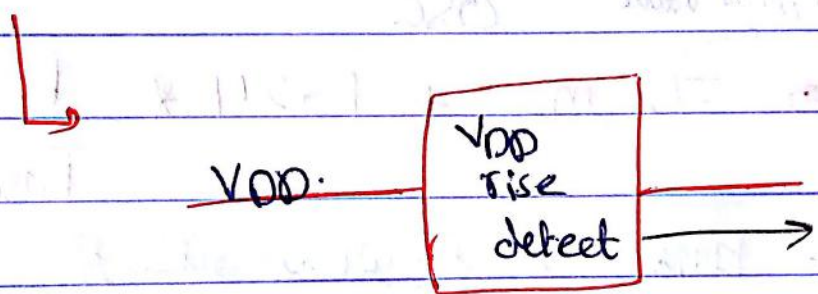 VDD.
VDD
rise
detect